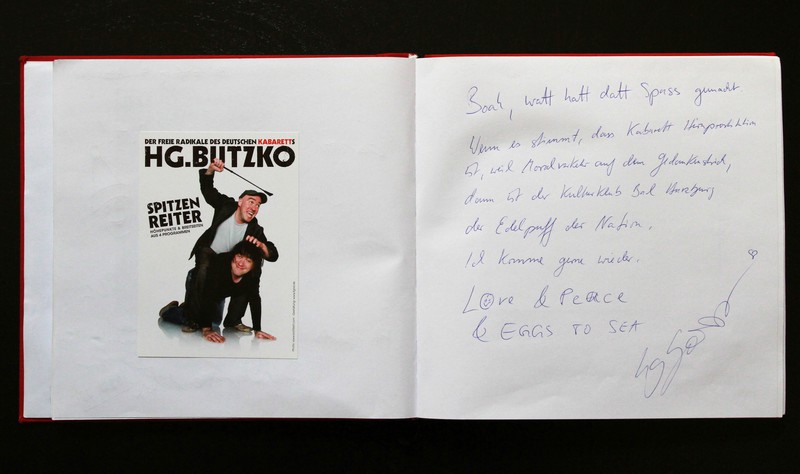 DER FREIE RADIKALE DES DEUTSCHEN KABARETTS
HG.BUTZKO
SPITZEN
REITER
HÖHEPUNKTE & BREITSEITEN
AUS 4 PROGRAMMEN
Boah, watt hatt datt Spass gemacht
Wenn es stimmt, dass Kabarett Hirnprostitution
ist, weil Moralverkehr auf dem Gedankenstrich,
dann ist der Kulturklub Bad Harzburg
der Edelpuff der Nation.
Ich komme gerne wieder.
Love & Peace
& EGGS TO SEA